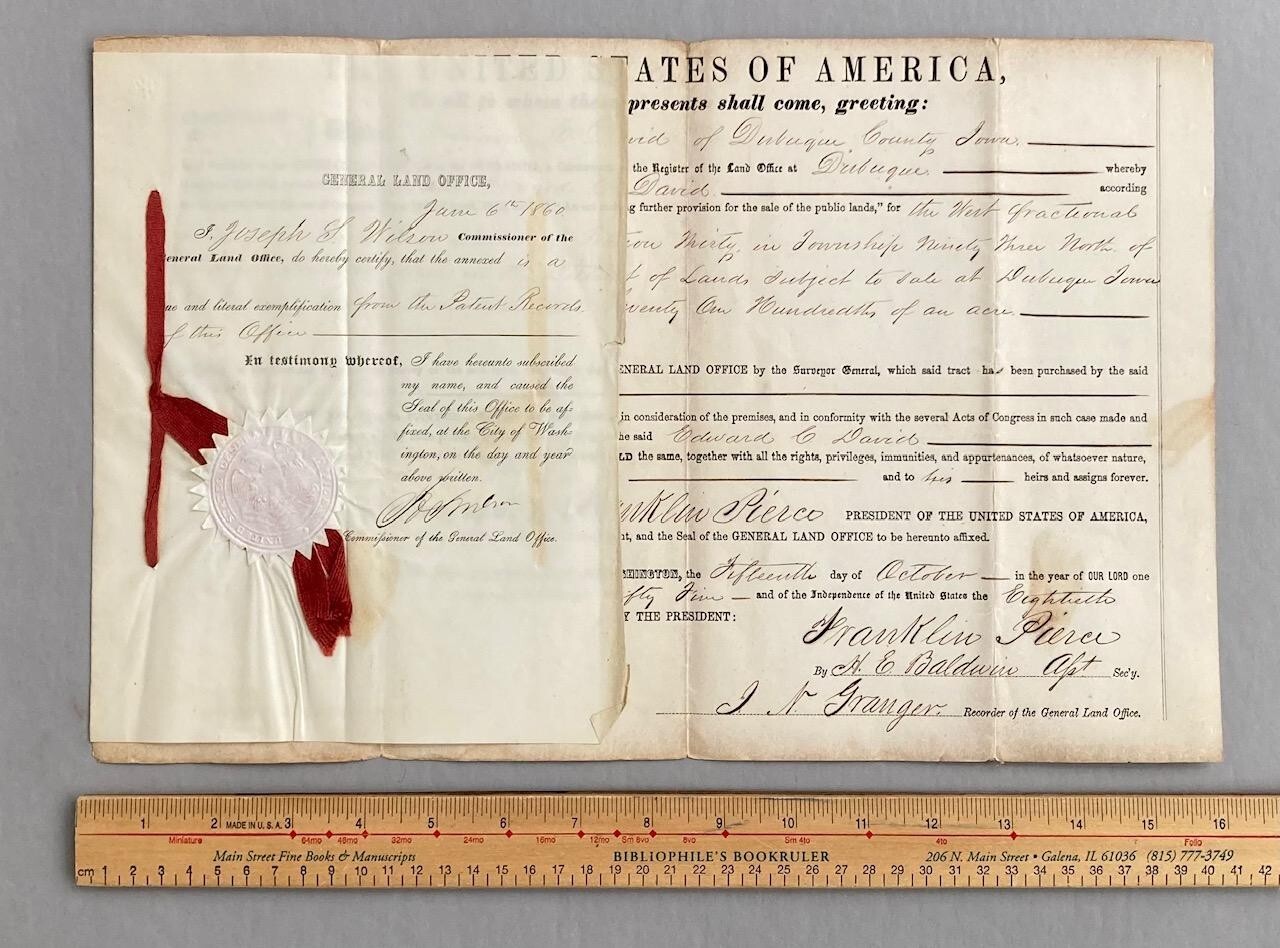 GENERAL LAND OFFICE,
June 6th 1860
I, Joseph S. Wilson Commissioner of the
eneral Land Office, do hereby certify, that the annexed is a
ue and literal exemplification from the Patent Records
f this Office
In testimony whereof, I have hereunto subscribed
my name, and caused the
Seal of this Office to be af-
fixed, at the City of Wash-
ington, on the day and year
above written.
Commissioner of the General Land Office.
UNITED STATES OF AMERICA,
presents shall come, greeting:
vid of Dubuque County Iowa.
the Register of the Land Office at Dubuque. whereby
David according
g further provision for the sale of the public lands," for the West fractional
ion Thirty, in Township Ninety Three North of
t of Lands subject to sale at Dubuque Iowa
wenty One Hundredths of an acre.
ENERAL LAND OFFICE by the Surveyor General, which said tract has been purchased by the said
in consideration of the premises, and in conformity with the several Acts of Congress in such case made and
he said Edward C David
LD the same, together with all the rights, privileges, immunities, and appurtenances, of whatsoever nature,
and to his heirs and assigns forever.
nklin Pierce PRESIDENT OF THE UNITED STATES OF AMERICA,
nt, and the Seal of the GENERAL LAND OFFICE to be hereunto affixed.
SHINGTON, the Fifteenth day of October in the year of OUR LORD one
ifty Five and of the Independence of the United States the Eightieth
Y THE PRESIDENT:
Franklin Pierce
By H. E. Baldwin Asst Sec'y.
J N Granger. Recorder of the General Land Office.
1 2 MADE IN U.S.A. 3 4 5 6 7 8 9 10 11 12 13 14 15 16
Miniature 64mo 48mo 32mo 24mo 16mo 12mo Sm 8vo 8vo Sm 4to 4to Folio
Main Street Fine Books & Manuscripts BIBLIOPHILE'S BOOKRULER 206 N. Main Street • Galena, IL 61036 (815) 777-3749
cm 1 2 3 4 5 6 7 8 9 10 11 12 13 14 15 16 17 18 19 20 21 22 23 24 25 26 27 28 29 30 31 32 33 34 35 36 37 38 39 40 41 42